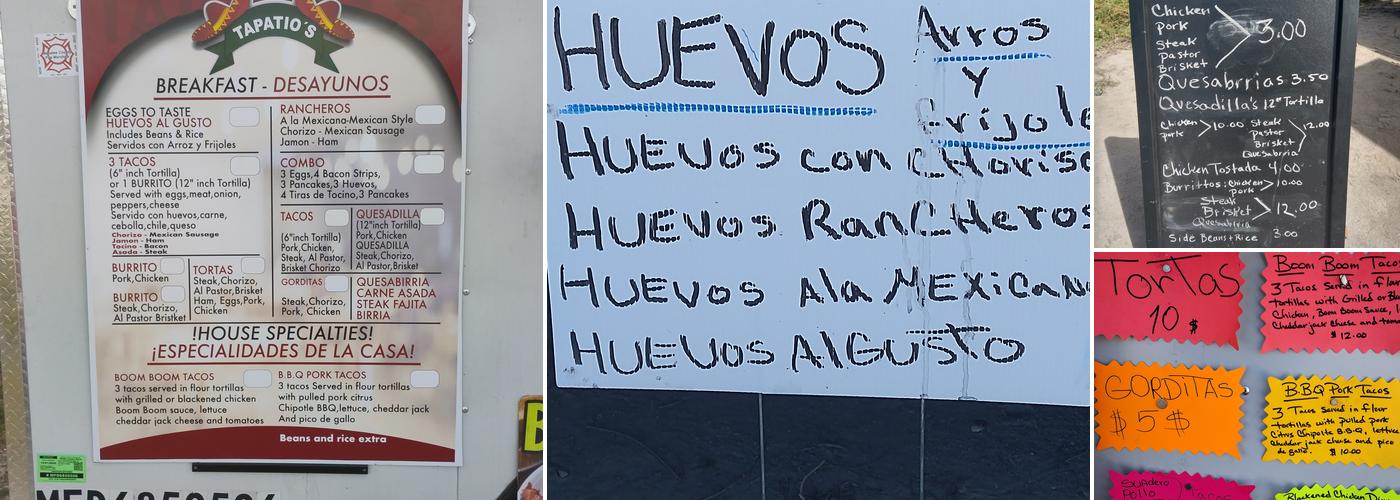 TAPATIO´S
BREAKFAST - DESAYUNOS
EGGS TO TASTE
HUEVOS AL GUSTO
Includes Beans & Rice
Servidos con Arroz y Frijoles
3 TACOS
(6" inch Tortilla)
or 1 BURRITO (12" inch Tortilla)
Served with eggs,meat,onion,
peppers,cheese
Servido con huevos,carne,
cebolla,chile,queso
Chorizo - Mexican Sausage
Jamon - Ham
Tocino - Bacon
Asada - Steak
BURRITO
Pork,Chicken
BURRITO
Steak,Chorizo,
Al Pastor Brisket
TORTAS
Steak,Chorizo,
Al Pastor,Brisket
Ham, Eggs,Pork,
Chicken
RANCHEROS
A la Mexicana-Mexican Style
Chorizo - Mexican Sausage
Jamon - Ham
COMBO
3 Eggs,4 Bacon Strips,
3 Pancakes,3 Huevos,
4 Tiras de Tocino,3 Pancakes
TACOS
(6"inch Tortilla)
Pork,Chicken,
Steak, Al Pastor,
Brisket Chorizo
QUESADILLA
(12"inch Tortilla)
Pork,Chicken
QUESADILLA
Steak,Chorizo,
Al Pastor,Brisket
GORDITAS
Steak,Chorizo,
Pork, Chicken
QUESABIRRIA
CARNE ASADA
STEAK FAJITA
BIRRIA
!HOUSE SPECIALTIES!
¡ESPECIALIDADES DE LA CASA!
BOOM BOOM TACOS
3 tacos served in flour tortillas
with grilled or blackened chicken
Boom Boom sauce, lettuce
cheddar jack cheese and tomatoes
B.B.Q PORK TACOS
3 tacos Served in flour tortillas
with pulled pork citrus
Chipotle BBQ,lettuce, cheddar jack
And pico de gallo
Beans and rice extra
HUEVOS
Arros
y
Frijole
HUEVOS con CHoriso
HUEVOS RanCHeros
HUEVOS Ala MEXicana
HUEVOS AlGUSTO
Chicken
pork
Steak
pastor
Brisket
3.00
Quesabrrias 3.50
Quesadilla's 12" Tortilla
Chicken
pork
10.00
Steak
Pastor
Brisket
Quesabrria
12.00
Chicken Tostada 4.00
Burrittos: Chicken
Pork
10.00
Steak
Brisket
Quesabrria
12.00
Side Beans + Rice 3.00
TorTas
10 $
Boom Boom Taco
3 Tacos Served in flour
tortillas with Grilled or Bl
Chicken, Boom Boom Sauce, l
Cheddar jack cheese and toma
$ 12.00
GORDITAS
$ 5 $
B.B.Q Pork Tacos
3 Tacos Served in flour
tortillas with pulled pork
Citrus Chipolte B.B.Q, lettuce
Cheddar jack cheese and pico
de gallo. $ 10.00
Suadero
Pollo
Blackened Chicken